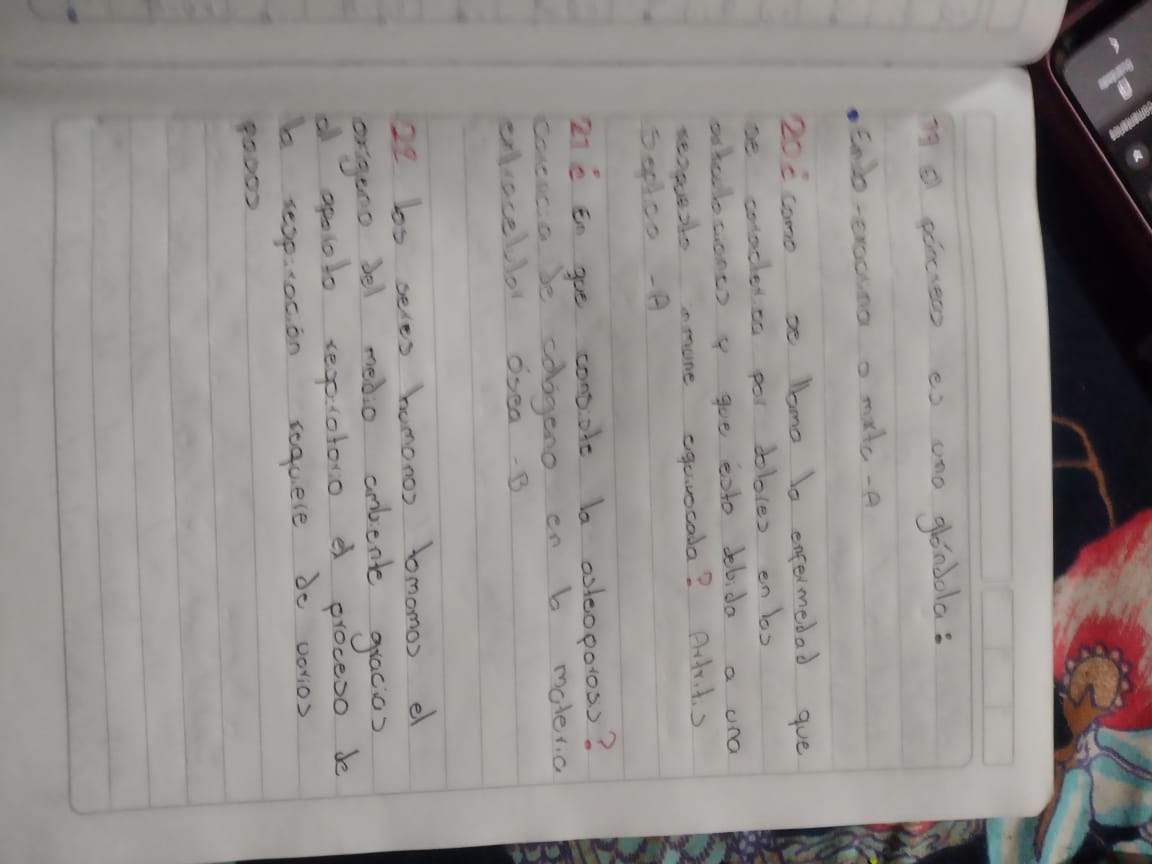 19 El páncreas es una glándula:
• Endo-exocrina o mixta -A
20 ¿como se llama la enfermedad que
se caracteriza por dolores en las
articulaciones y que ésto debida a una
respuesta inmune equivocada? Artritis
Septica -A
21 ¿ En que consiste la osteoporosis?
Carencia de colágeno en la materia
extracelular ósea -B
22 los seres humanos tomamos el
oxigeno del medio ambiente gracias
al aparato respiratorio el proceso de
la respiración requiere de varios
pasos